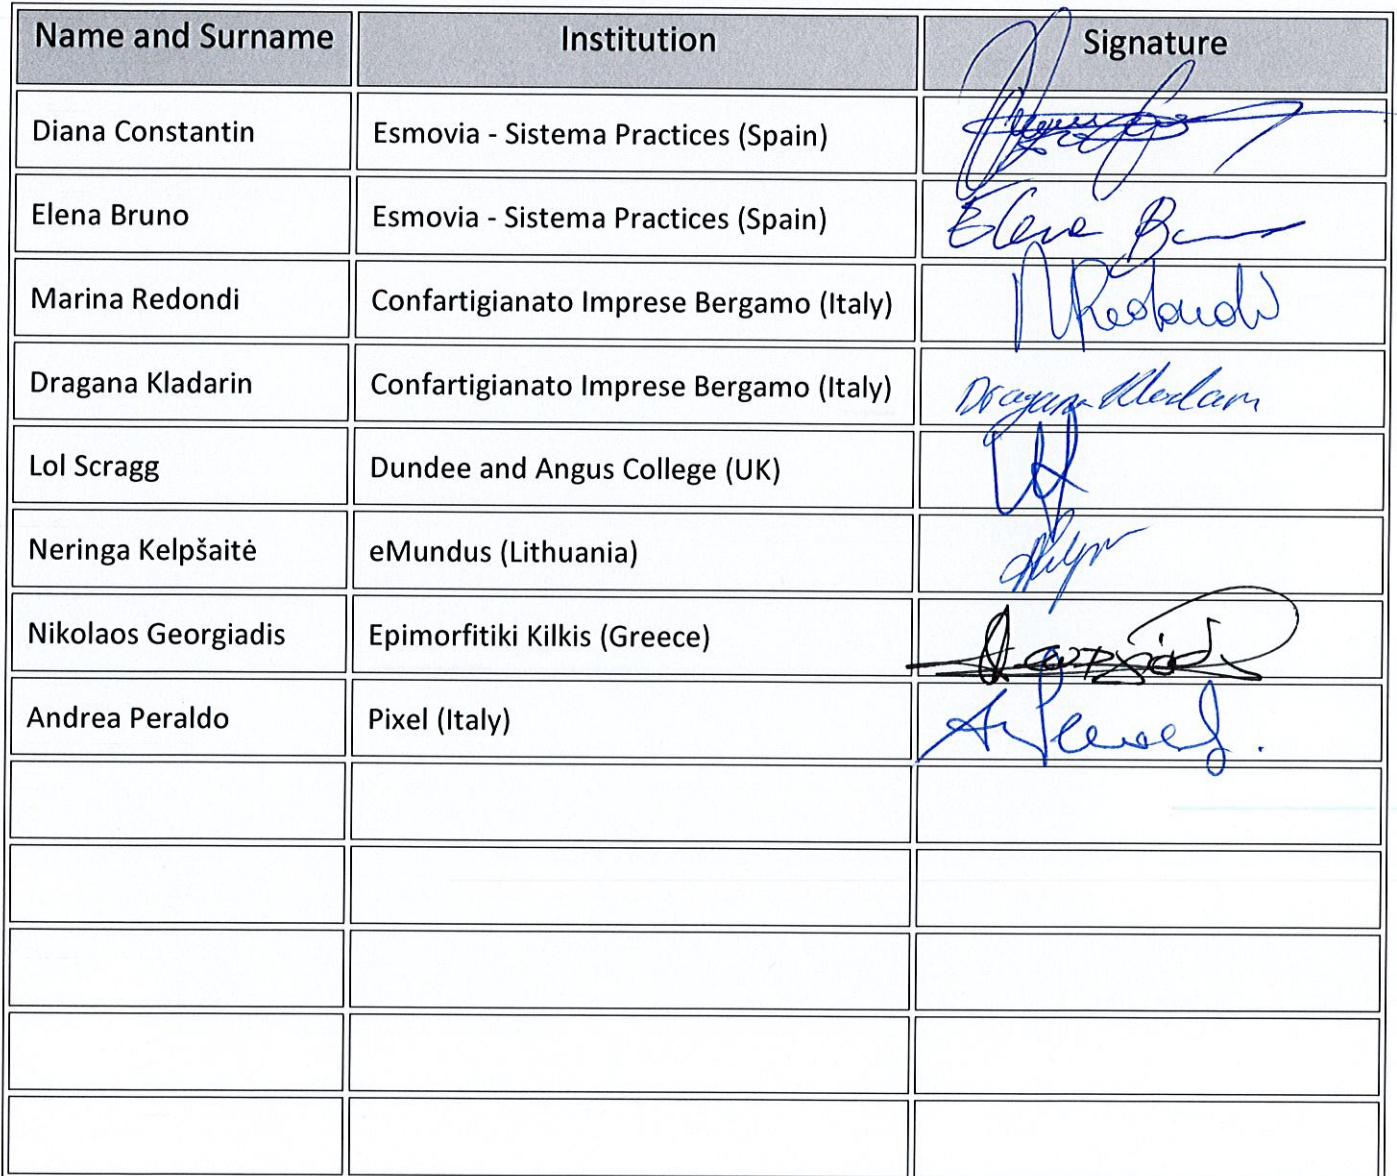 Name and Surname Institution Signature
Diana Constantin Esmovia - Sistema Practices (Spain)
Elena Bruno Esmovia - Sistema Practices (Spain) Elena
Marina Redondi Confartigianato Imprese Bergamo (Italy) MRedondi
Dragana Kladarin Confartigianato Imprese Bergamo (Italy) Dragana
Lol Scragg Dundee and Angus College (UK)
Neringa Kelpšaitė eMundus (Lithuania)
Nikolaos Georgiadis Epimorfitiki Kilkis (Greece)
Andrea Peraldo Pixel (Italy)